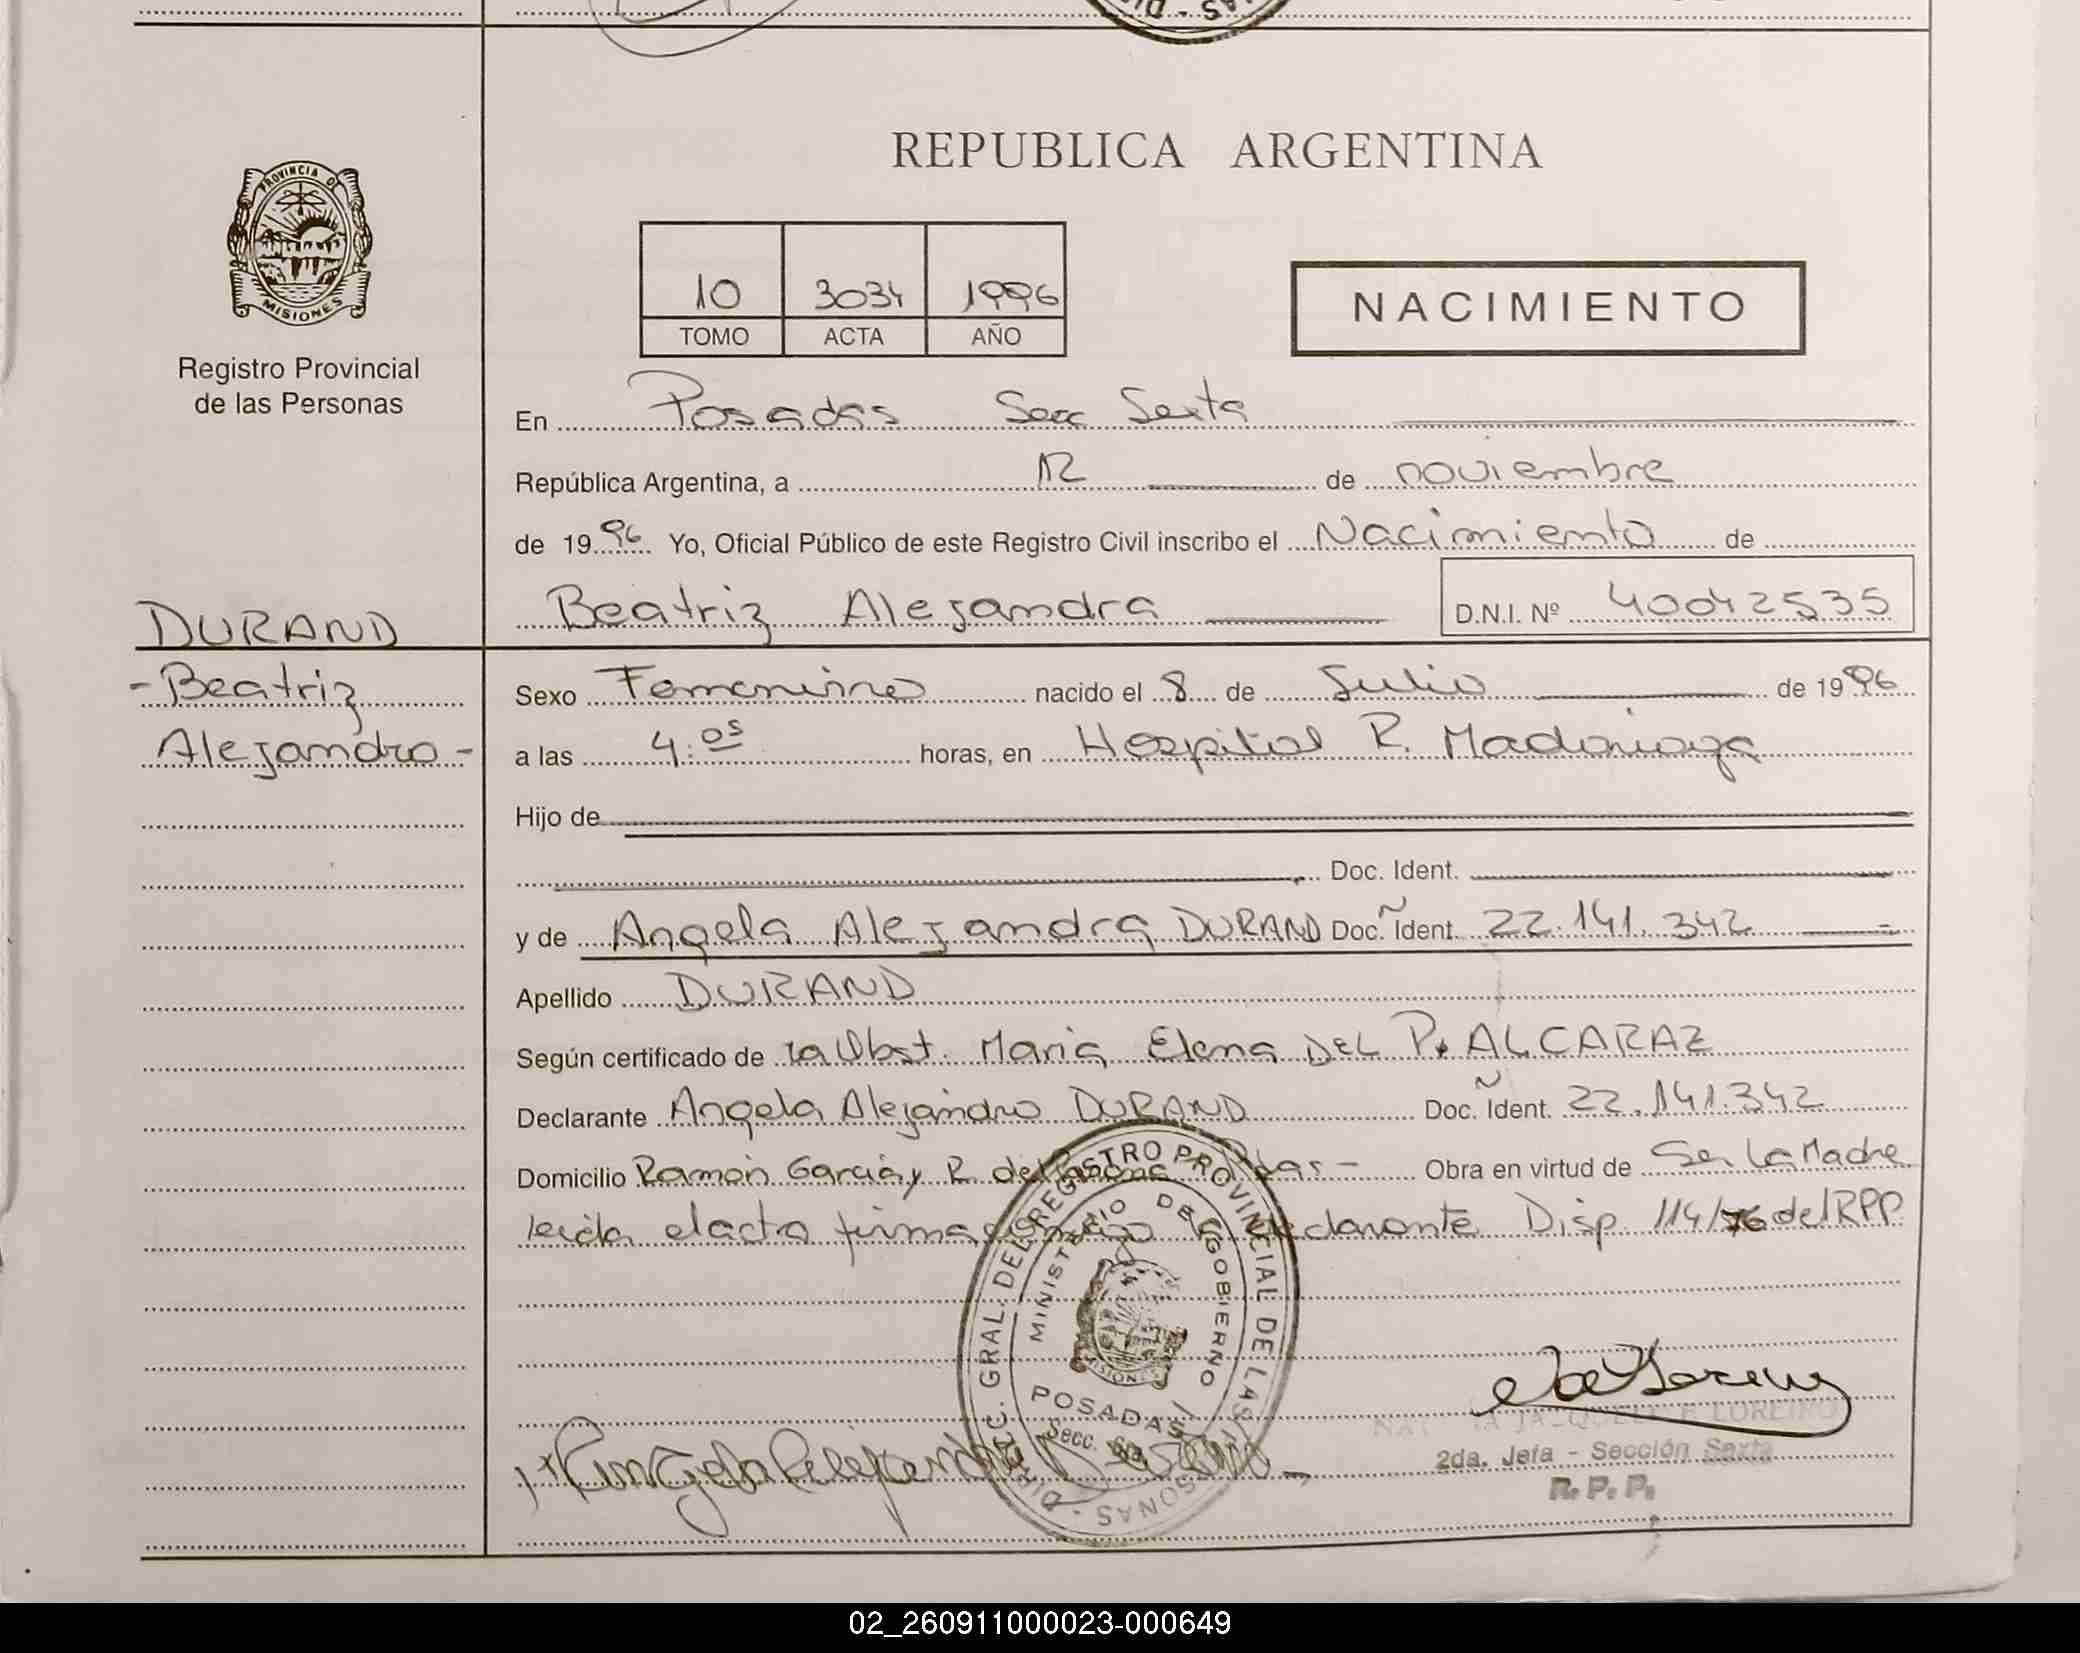 REPUBLICA ARGENTINA
PROVINCIA DE
MISIONES
Registro Provincial
de las Personas
10 3034 1996
TOMO ACTA AÑO
NACIMIENTO
En Posadas Secc Sexta
República Argentina, a 12 de noviembre
de 1996 Yo, Oficial Público de este Registro Civil inscribo el Nacimiento de
Beatriz Alejandra D.N.I. Nº 40042535
DURAND
- Beatriz
Alejandra -
Sexo Femenino nacido el 8 de Julio de 1996
a las 4:05 horas, en Hospital R. Madariaga
Hijo de
Doc. Ident.
y de Angela Alejandra DURAND Doc. Ident. 22.141.342
Apellido DURAND
Según certificado de la Obst. Maria Elena DEL P. ALCARAZ
Declarante Angela Alejandra DURAND Doc. Ident. 22.141.342
Domicilio Ramon Garcia y R. del Pdas - Obra en virtud de Ser La Madre
leida el acta firma conmigo declarante Disp. 114/76 del RPP
DIRECC. GRAL. DEL REGISTRO PROVINCIAL DE LAS PERSONAS -
MINISTERIO DE GOBIERNO
MISIONES
POSADAS
Secc. 6ta
Angela Alejandra Durand
LOREIRO
2da. Jefa - Sección Sexta
R. P. P.
02_260911000023-000649